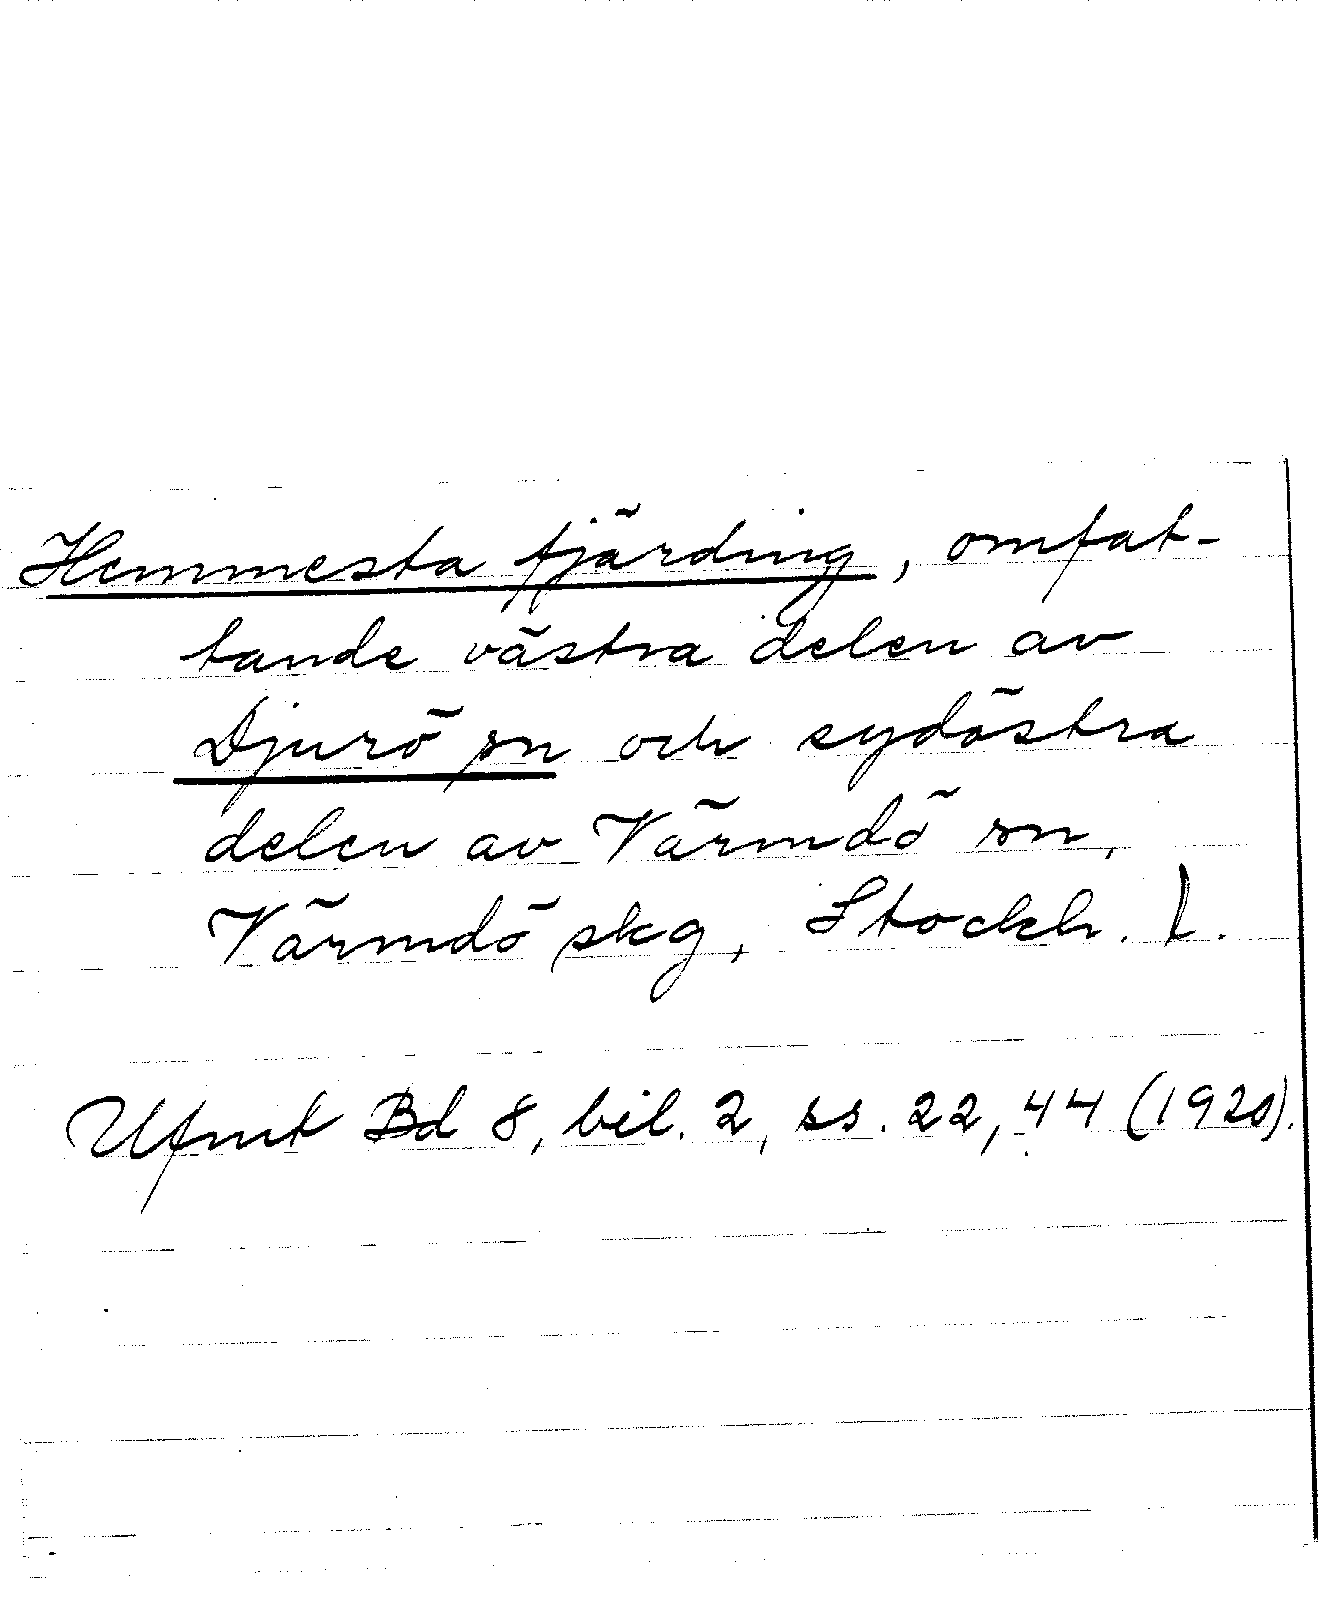 Hemmesta fjärding, omfat-
tande västra delen av
Djurö sn och sydöstra
delen av Värmdö sn,
Värmdö skg, Stockh. l.
Ufmt Bd 8, bil. 2, ss. 22, 44 (1920).